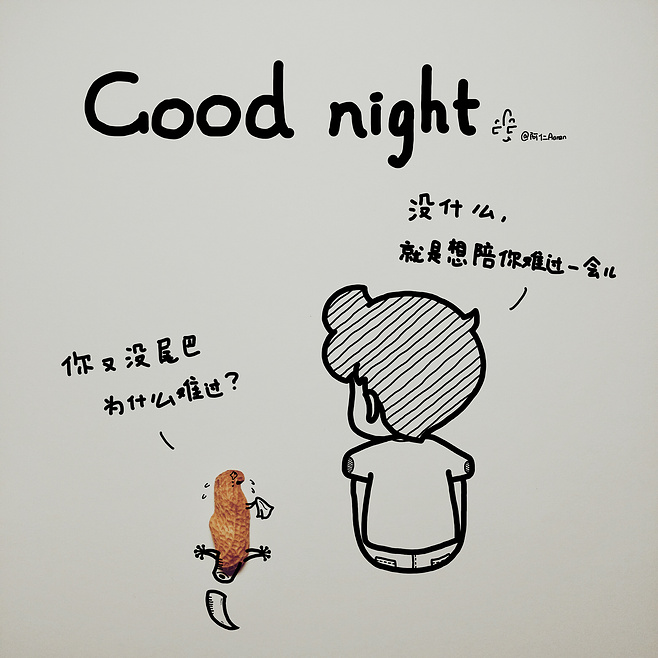 Good night
@阿仁Aaron
没什么,
就是想陪你难过一会儿
你又没尾巴
为什么难过?